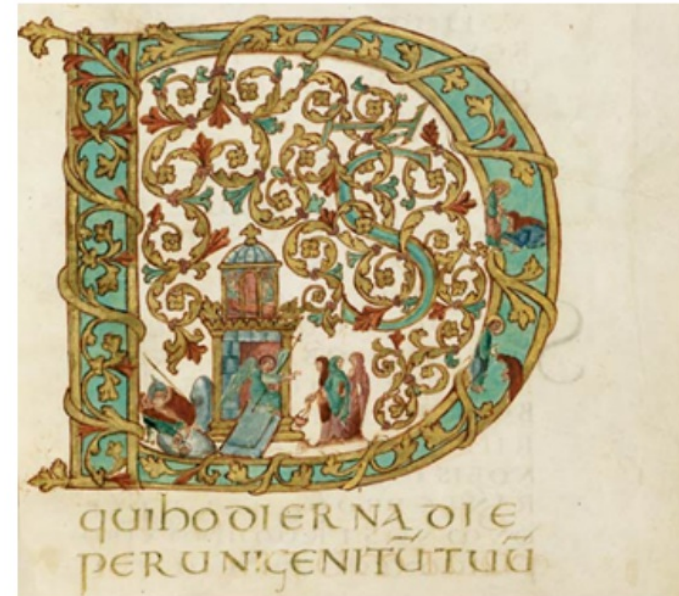 DS
qui hodierna die
PER UNIGENITŪ TUŪ